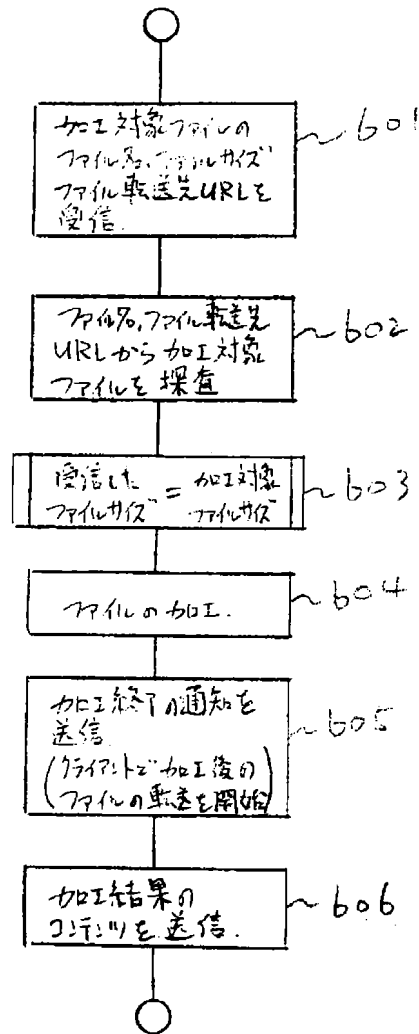 加工対象ファイルの
ファイル名、ファイルサイズ
ファイル転送先URLを
受信.
601
ファイル名、ファイル転送先
URLから加工対象
ファイルを探査
602
受信した = 加工対象
ファイルサイズ ファイルサイズ
603
ファイルの加工.
604
加工終了の通知を
送信
(クライアントで加工後の
ファイルの転送を開始)
605
加工結果の
コンテンツを送信.
606